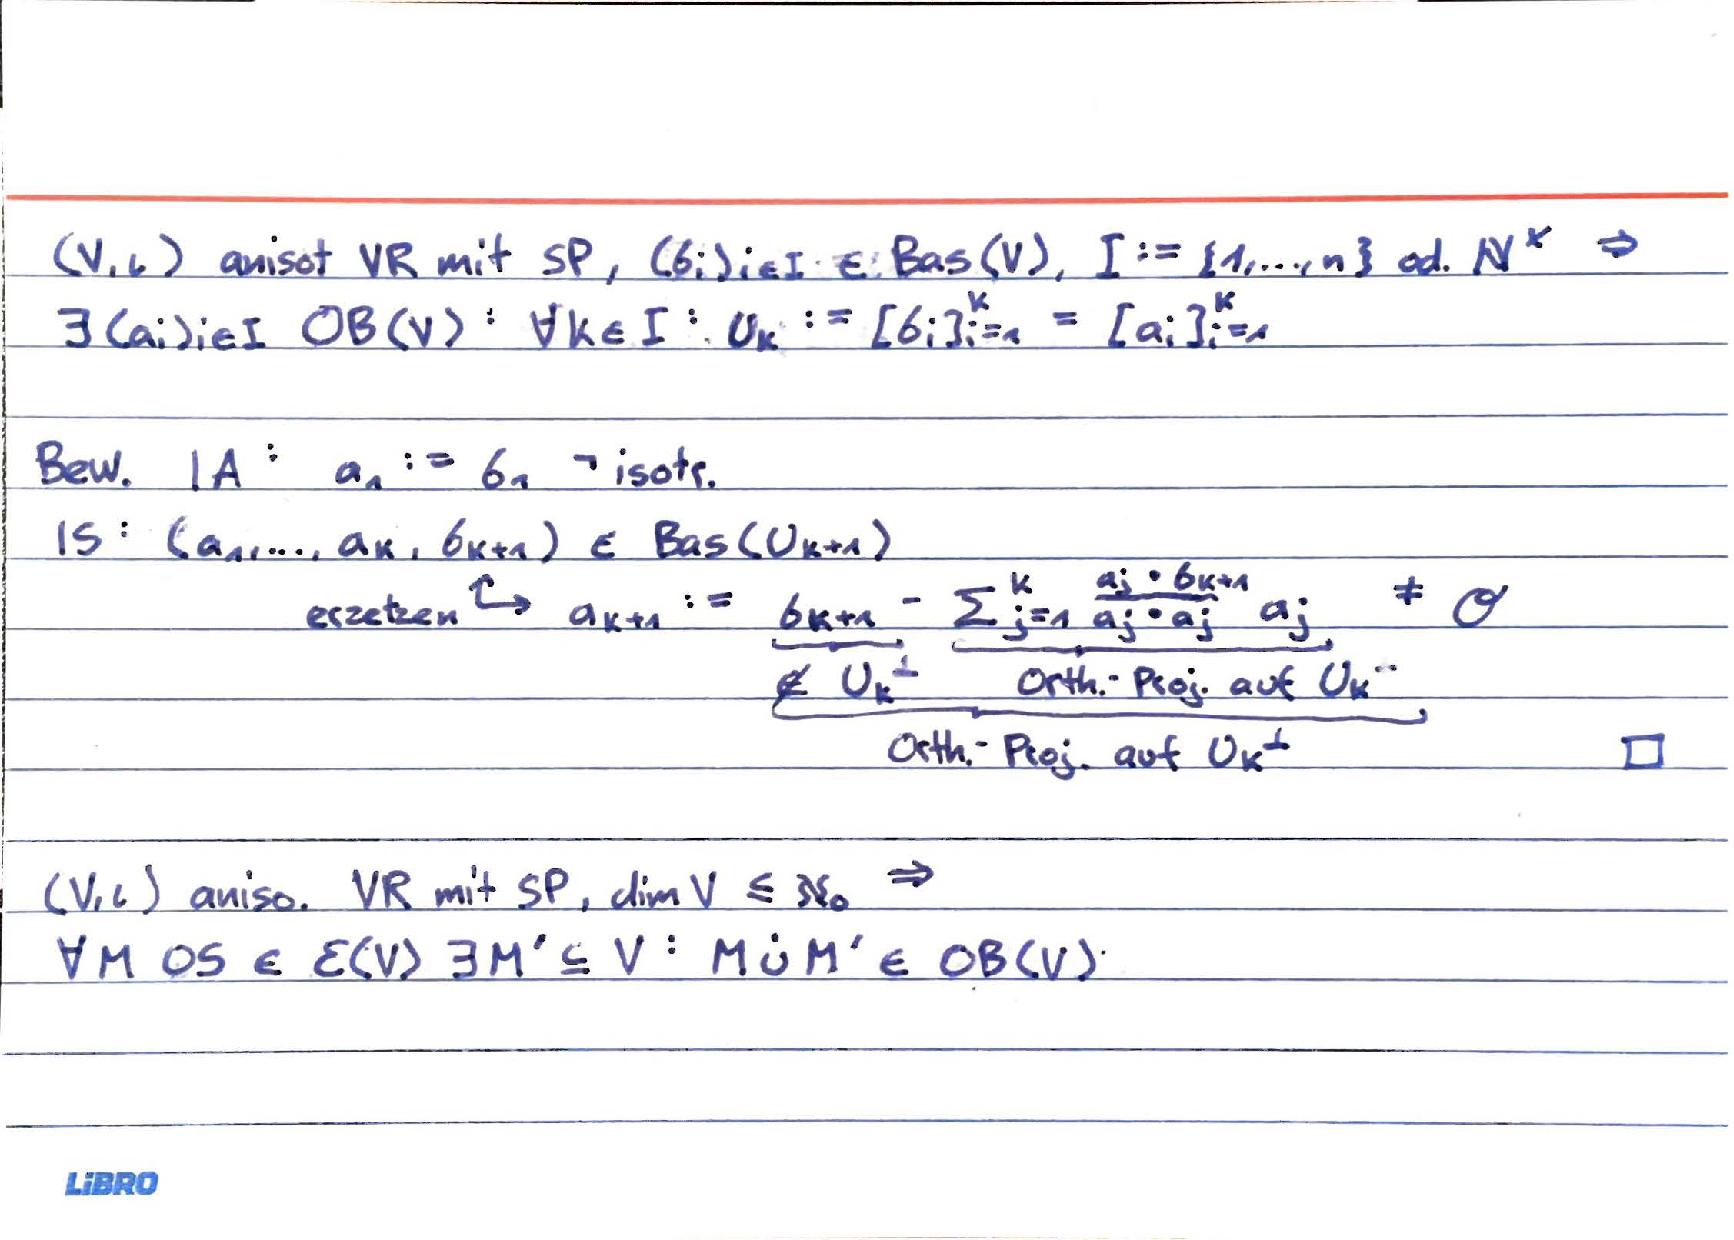 (V,ι) anisot VR mit SP, (b_i)_{i∈I} ∈ Bas(V), I := {1,...,n} od. ℕ^× ⇒
∃(a_i)_{i∈I} OB(V): ∀k∈I: U_k := [b_i]_{i=1}^k = [a_i]_{i=1}^k
Bew. IA: a_1 := b_1 ¬ isotr.
IS: (a_1,..., a_k, b_{k+1}) ∈ Bas(U_{k+1})
erzetzen ↪ a_{k+1} := b_{k+1} - ∑_{j=1}^k \frac{a_j · b_{k+1}}{a_j · a_j} a_j ≠ 𝒪
∉ U_k^⊥ Orth.-Proj. auf U_k
Orth.-Proj. auf U_k^⊥ □
(V,ι) aniso. VR mit SP, dim V ≤ ℵ_0 ⇒
∀M OS ∈ ℰ(V) ∃M' ⊆ V: M ∪̇ M' ∈ OB(V).
LiBRO